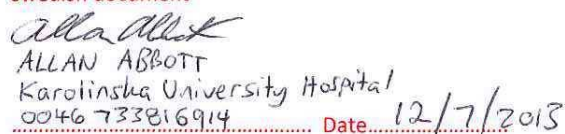 Swedish document
Allan Abbott
ALLAN ABBOTT
Karolinska University Hospital
0046 733816914
Date 12/7/2013